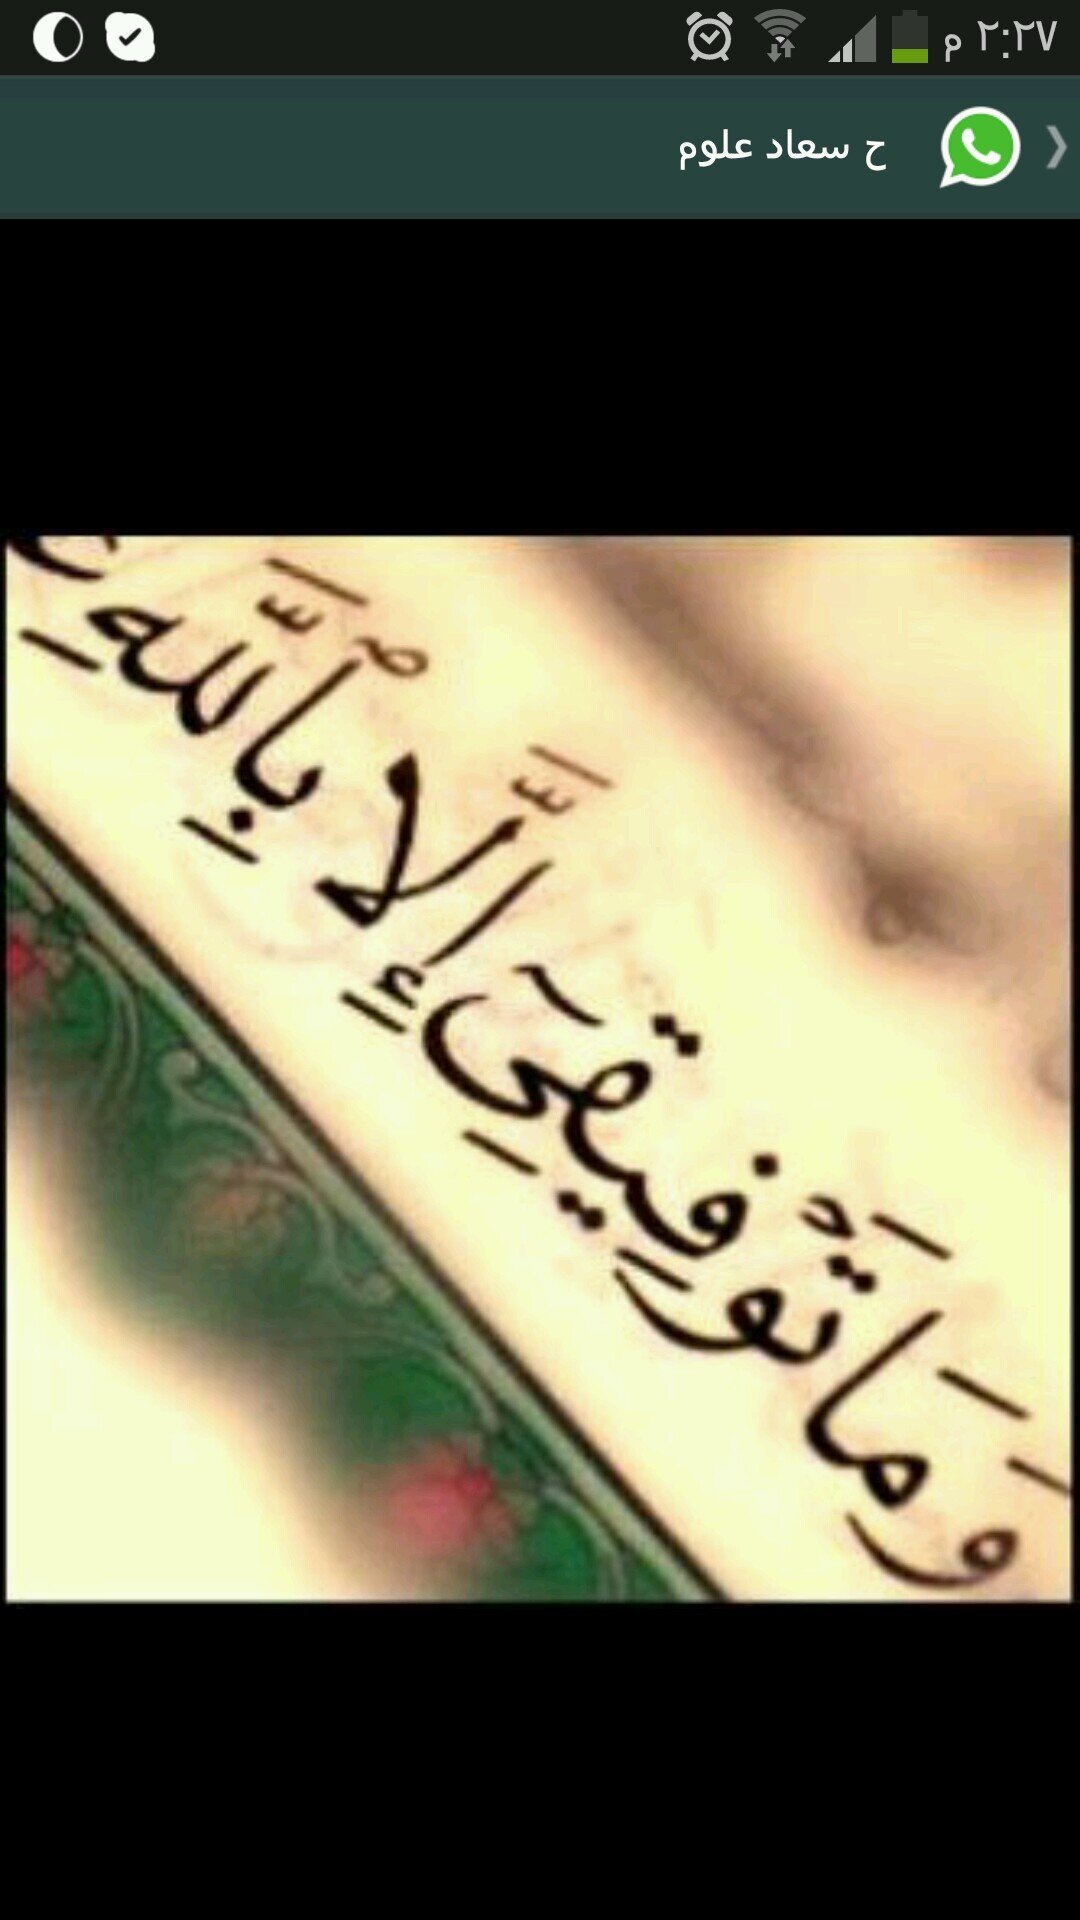 ٢:٢٧ م
ح سعاد علوم
وَمَا تَوْفِيقِيٓ إِلَّا بِٱللَّهِ